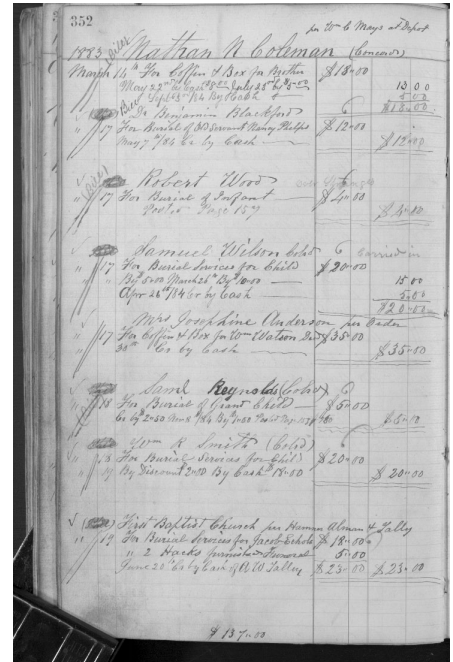 352
per Wm C Mays at Depot
1885 Nathan N Coleman (Concord)
March 14th For Coffin & Box for Brother $18.00
May 22nd By Cash 8.00 July 25th By 5.00 13 00
Sept 8th /84 By Cash 5 00
$18.00
Dr Benjamin Blackford
" 17 For Burial of Old Servant Nancy Phelps $12.00
May 7th /84 Cr by Cash $12.00
Robert Wood
" 17 For Burial of Infant $4.00
Posted Page 157 $4.00
Samuel Wilson Cold carried in
" 17 For Burial Services for Child $20.00
" By 5.00 March 26th By 10.00 15 00
Apr 26th /84 Cr by Cash 5.00
$20.00
Mrs Josephine Anderson per Order
" 17 For Coffin & Box for Wm Watson $35.00
30th Cr by Cash $35.00
Saml Reynolds (Cold)
" 18 For Burial of Grand Child $5.00
Wm R Smith (Cold)
" 18 For Burial Services for Child $20.00
" 19 By Discount 2.00 By Cash 18.00 $20.00
First Baptist Church per Haman Alman & Talley
" 19 For Burial Services for Jacob Echols $18.00
" " 2 Hacks furnished Funeral 5.00
June 20th Cr by Cash of A W Talley $23.00 $23.00
$137.00